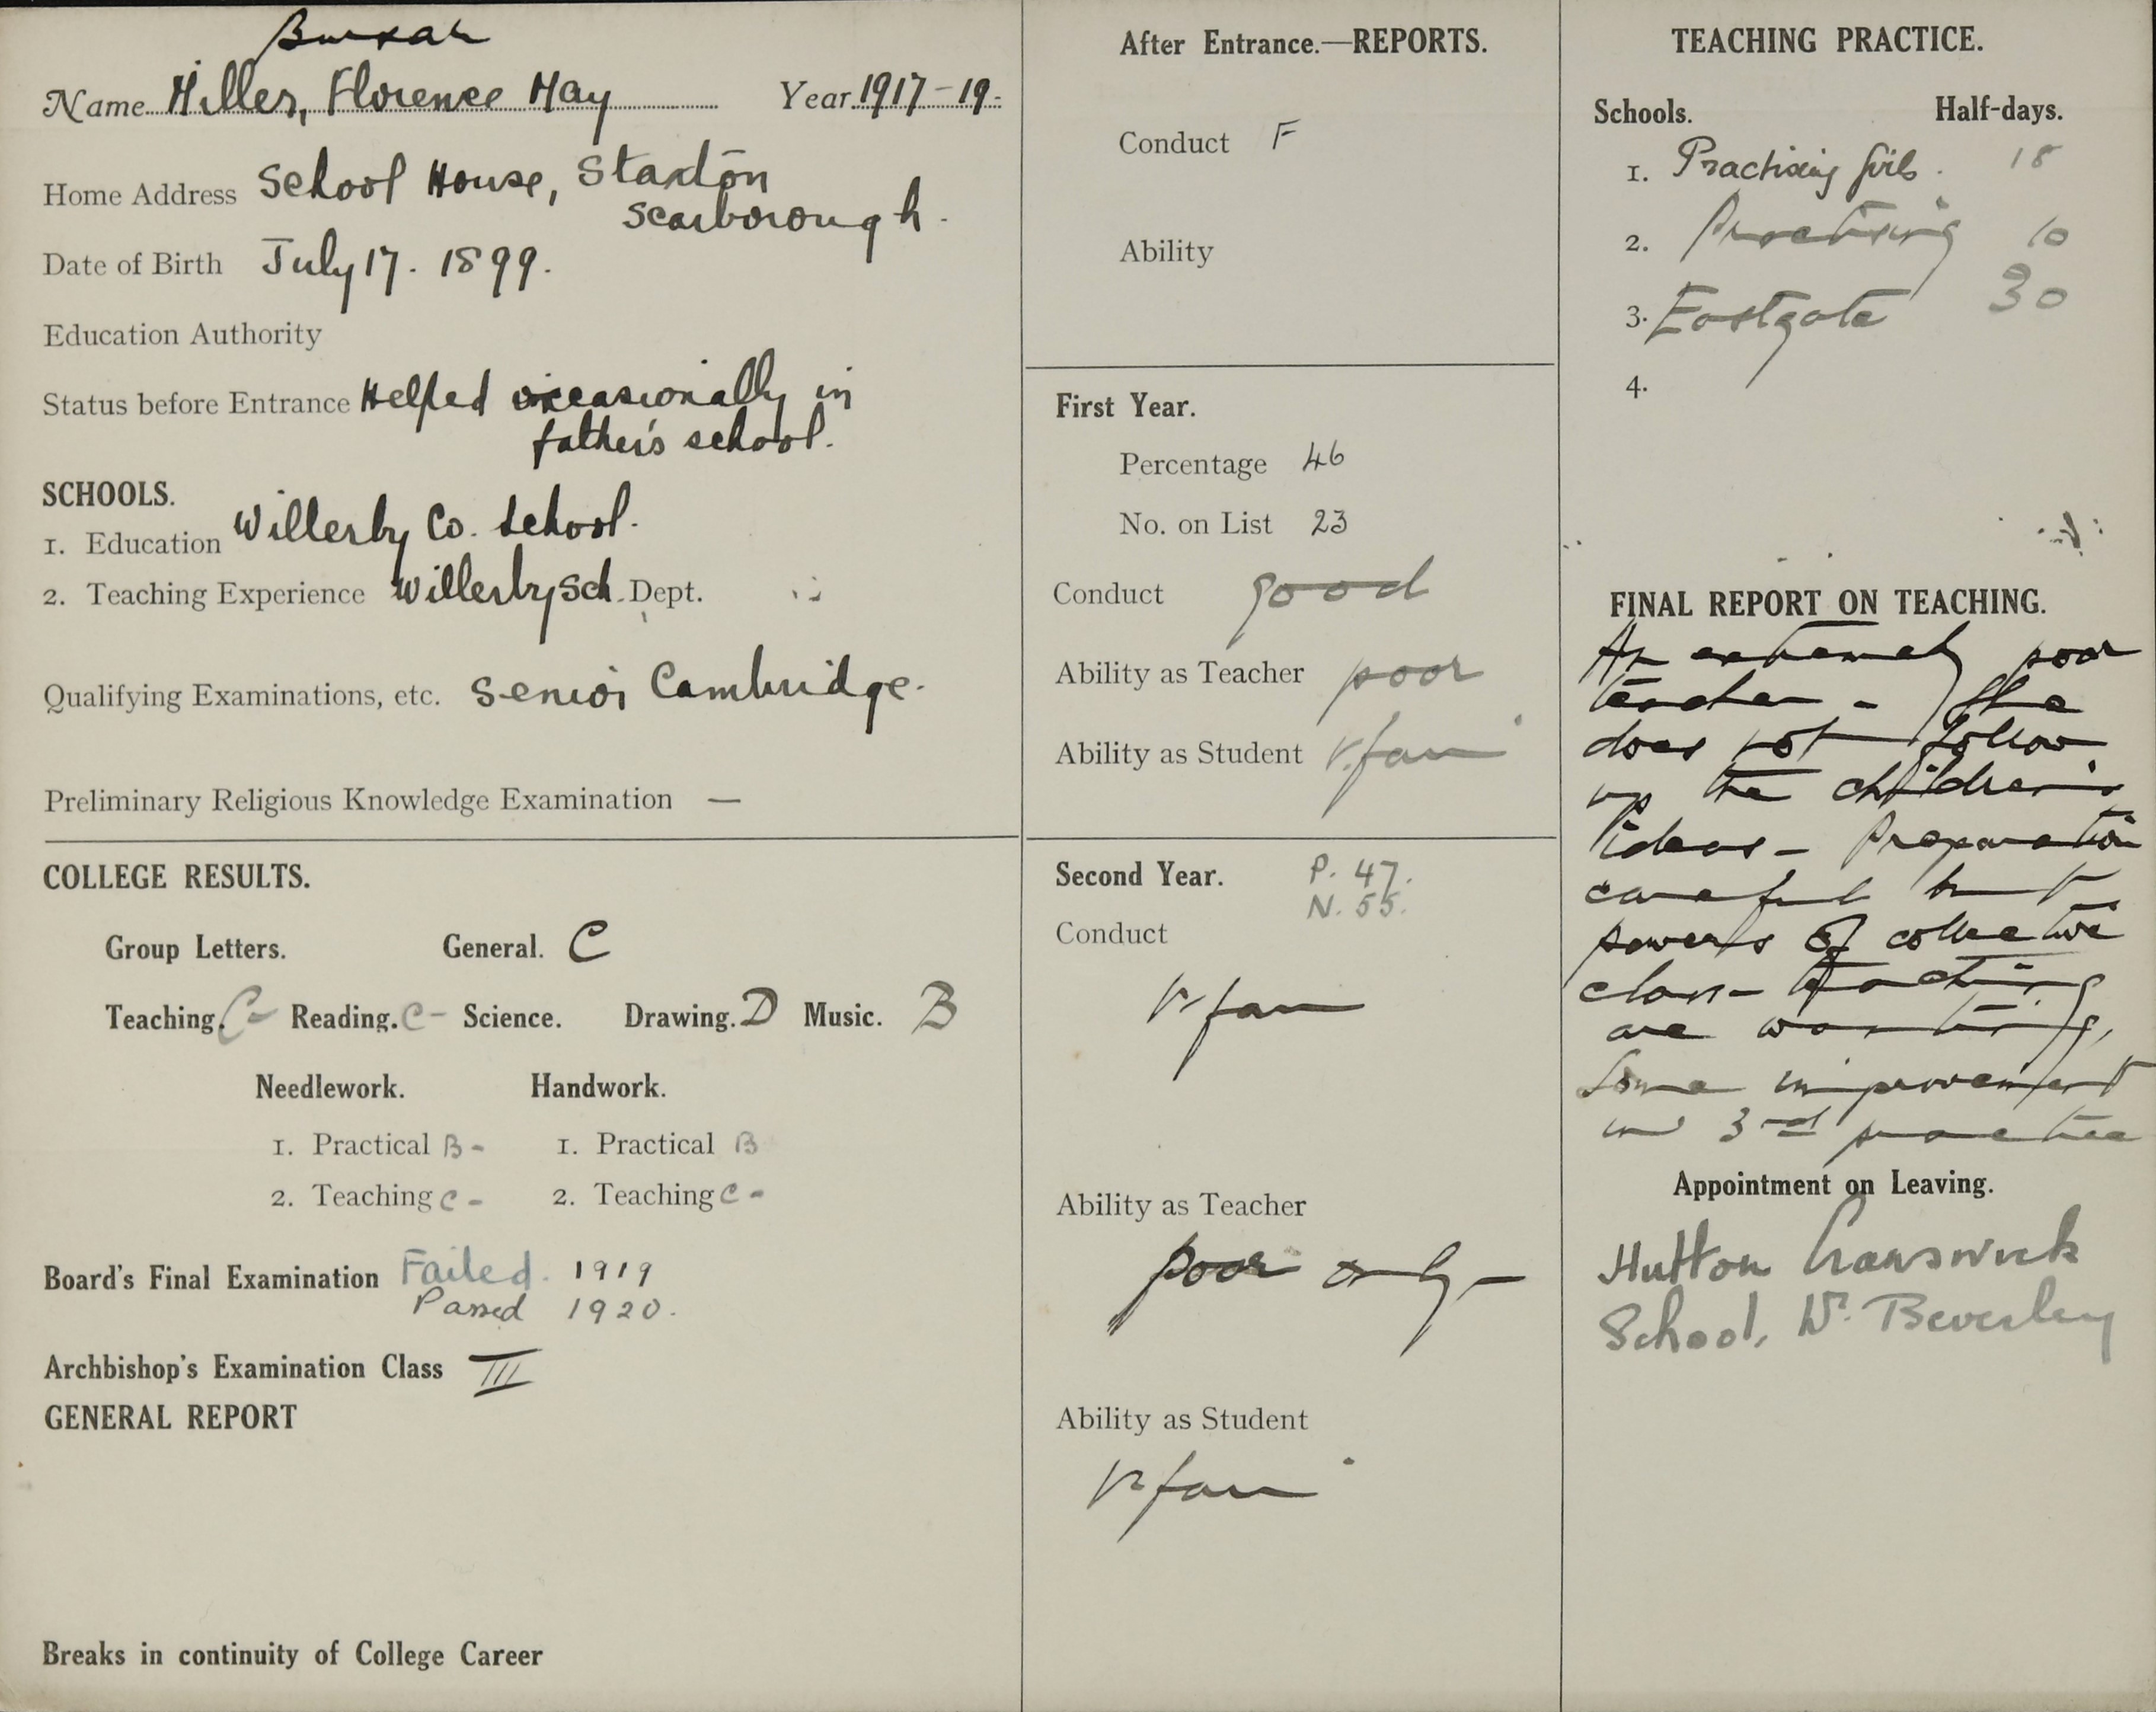 Bursar
Name Hiller, Florence May Year 1917-19.
Home Address School House, Staxton
Scarborough.
Date of Birth July 17. 1899.
Education Authority
Status before Entrance Helped occasionally in
father's school.
SCHOOLS.
1. Education Willerby Co. School.
2. Teaching Experience Willerby Sch. Dept.
Qualifying Examinations, etc. Senior Cambridge.
Preliminary Religious Knowledge Examination —
COLLEGE RESULTS.
Group Letters. General. C
Teaching. C- Reading. C- Science. Drawing. D Music. B
Needlework. Handwork.
1. Practical B- 1. Practical B
2. Teaching C- 2. Teaching C-
Board's Final Examination Failed. 1919
Passed 1920.
Archbishop's Examination Class III
GENERAL REPORT
Breaks in continuity of College Career
After Entrance.—REPORTS.
Conduct F
Ability
First Year.
Percentage 46
No. on List 23
Conduct good
Ability as Teacher poor
Ability as Student v. fair
Second Year. P. 47.
N. 55.
Conduct
v. fair
Ability as Teacher
poor only —
Ability as Student
v. fair
TEACHING PRACTICE.
Schools. Half-days.
1. Practising Girls. 18
2. Practising 10
3. Eastgate 30
4.
FINAL REPORT ON TEACHING.
An extremely poor
teacher - She
does not follow
up the children's
ideas - Preparation
careful but
powers of collective
class-teaching
are wanting,
Some improvement
in 3rd practice
Appointment on Leaving.
Hutton Cranswick
School, Nr. Beverley